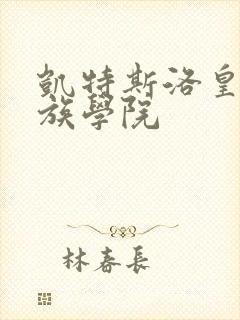 凱特斯洛皇
族學院
林春長